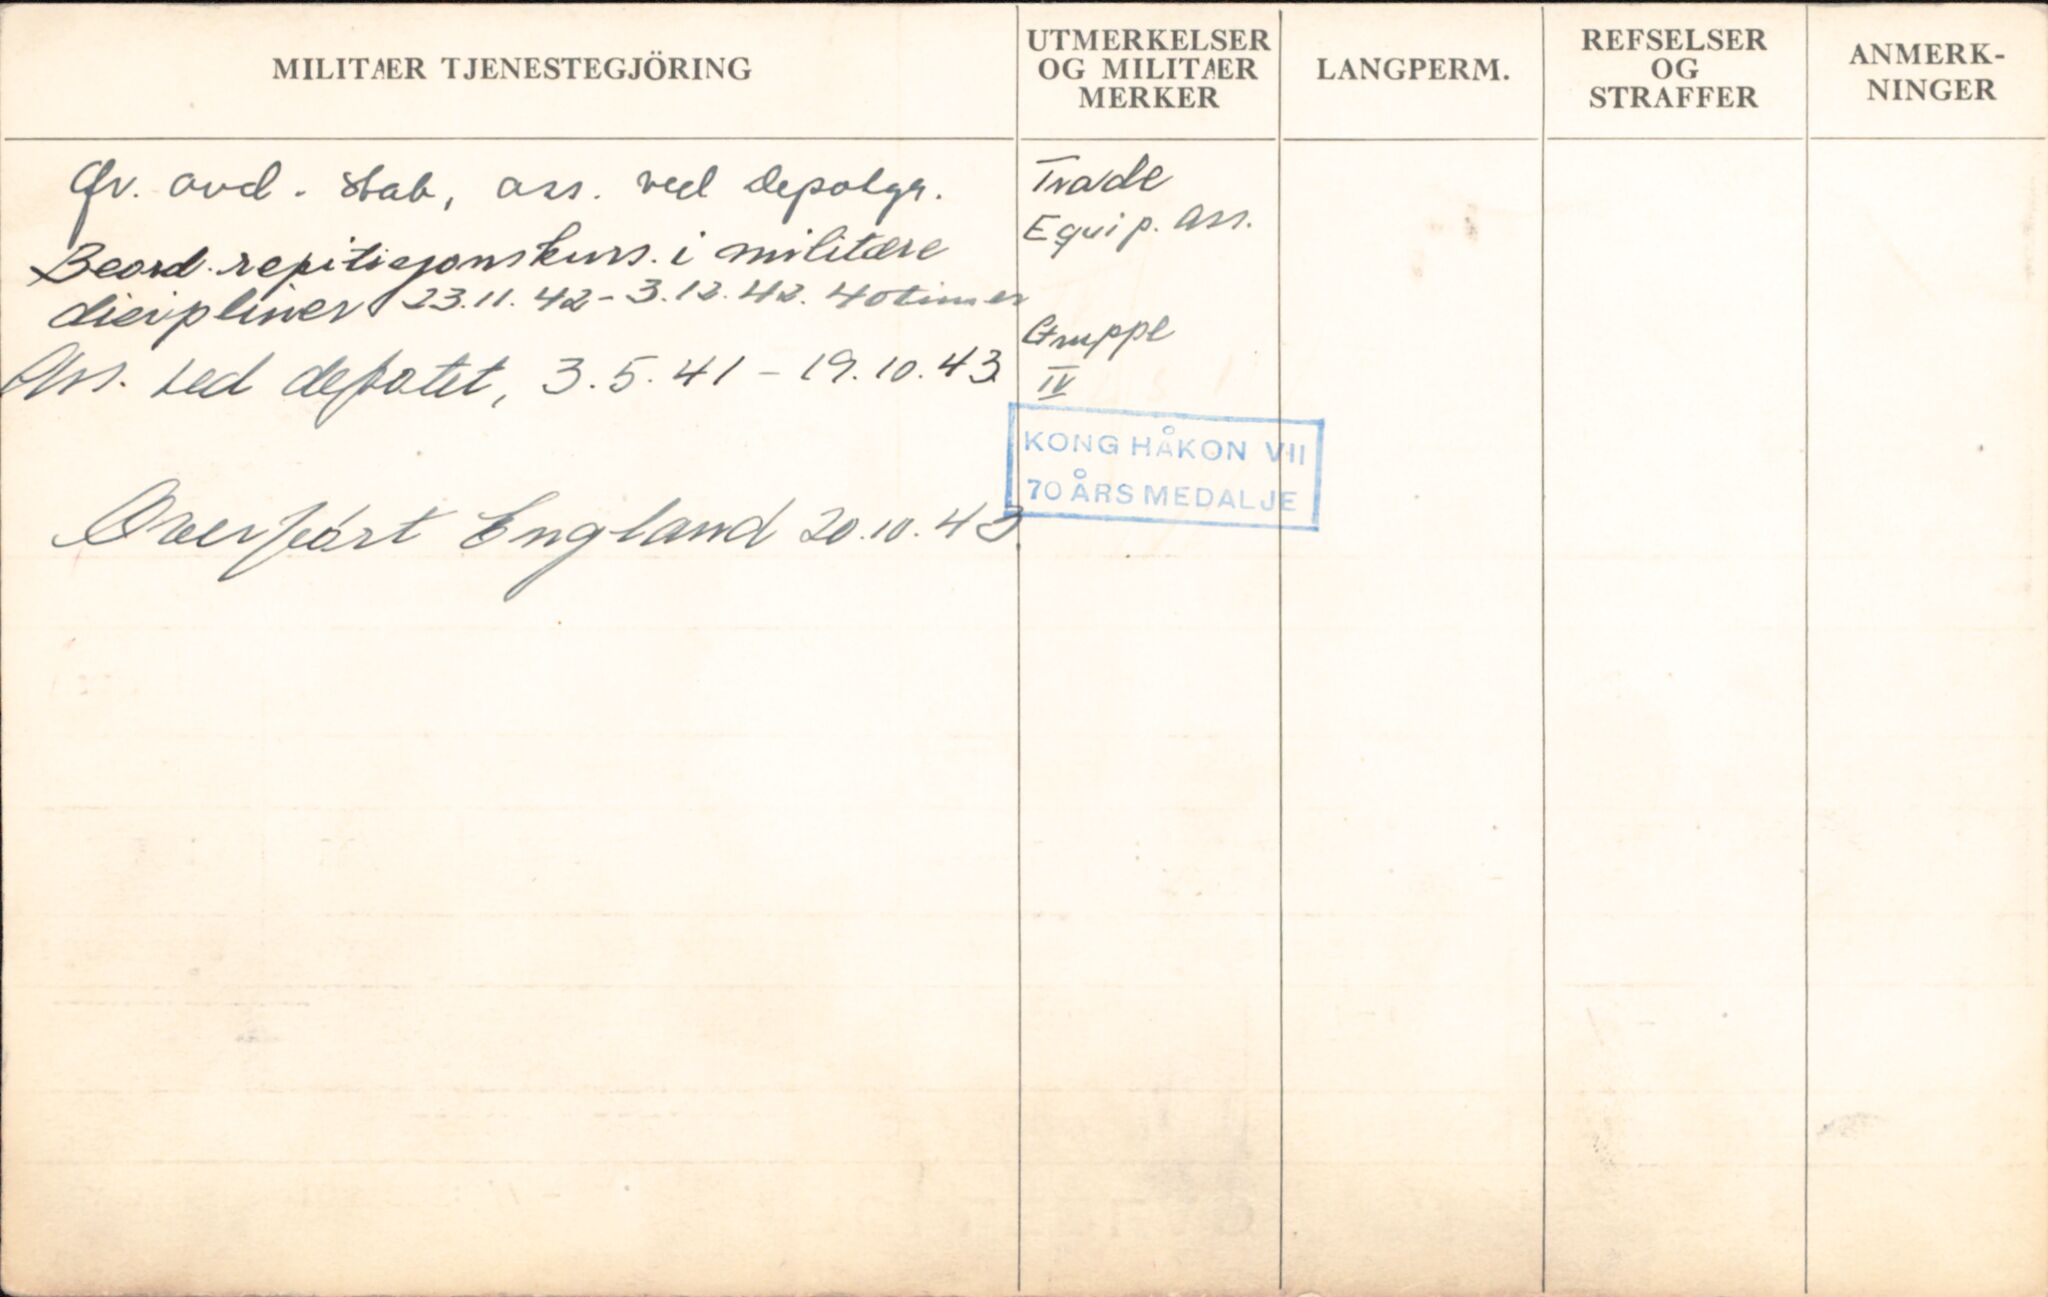 MILITÆR TJENESTEGJÖRING
UTMERKELSER
OG MILITÆR
MERKER
LANGPERM.
REFSELSER
OG
STRAFFER
ANMERK-
NINGER
avd. stab, ass. ved depotgr.
Beord. repitisjonskurs. i militære
disipliner 23.11.42 - 3.12.42. 40 timer
Ass. ved depotet, 3.5.41 - 19.10.43
Overført England 20.10.43
Trade
Equip. Ass.
Gruppe
IV
KONG HÅKON VII
70 ÅRS MEDALJE